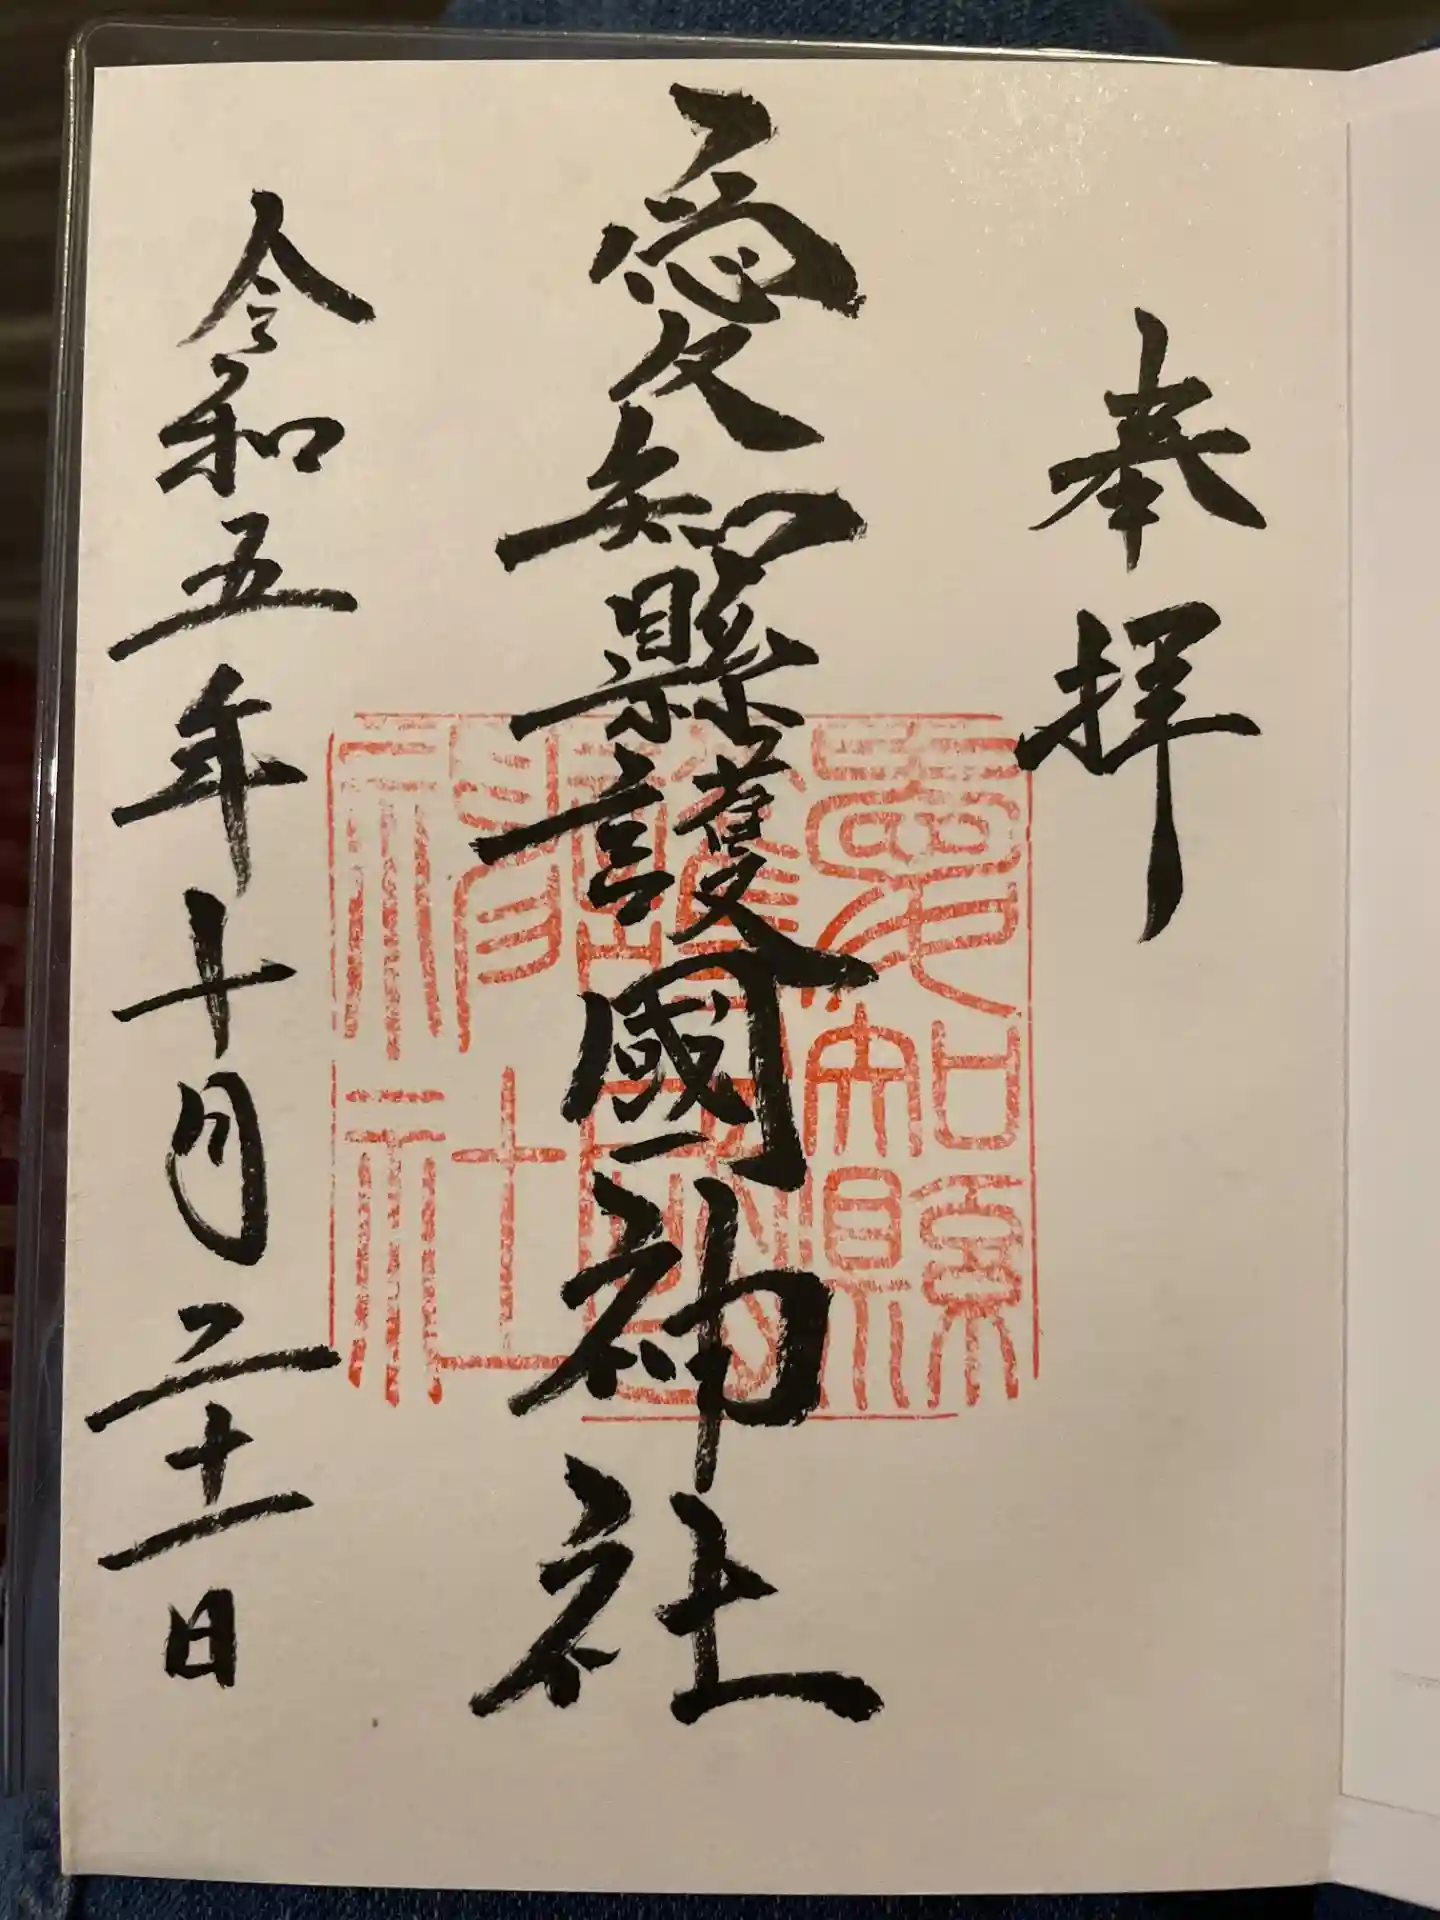 奉拝
愛知縣護國神社
愛知縣護國神社
令和五年十月二十一日